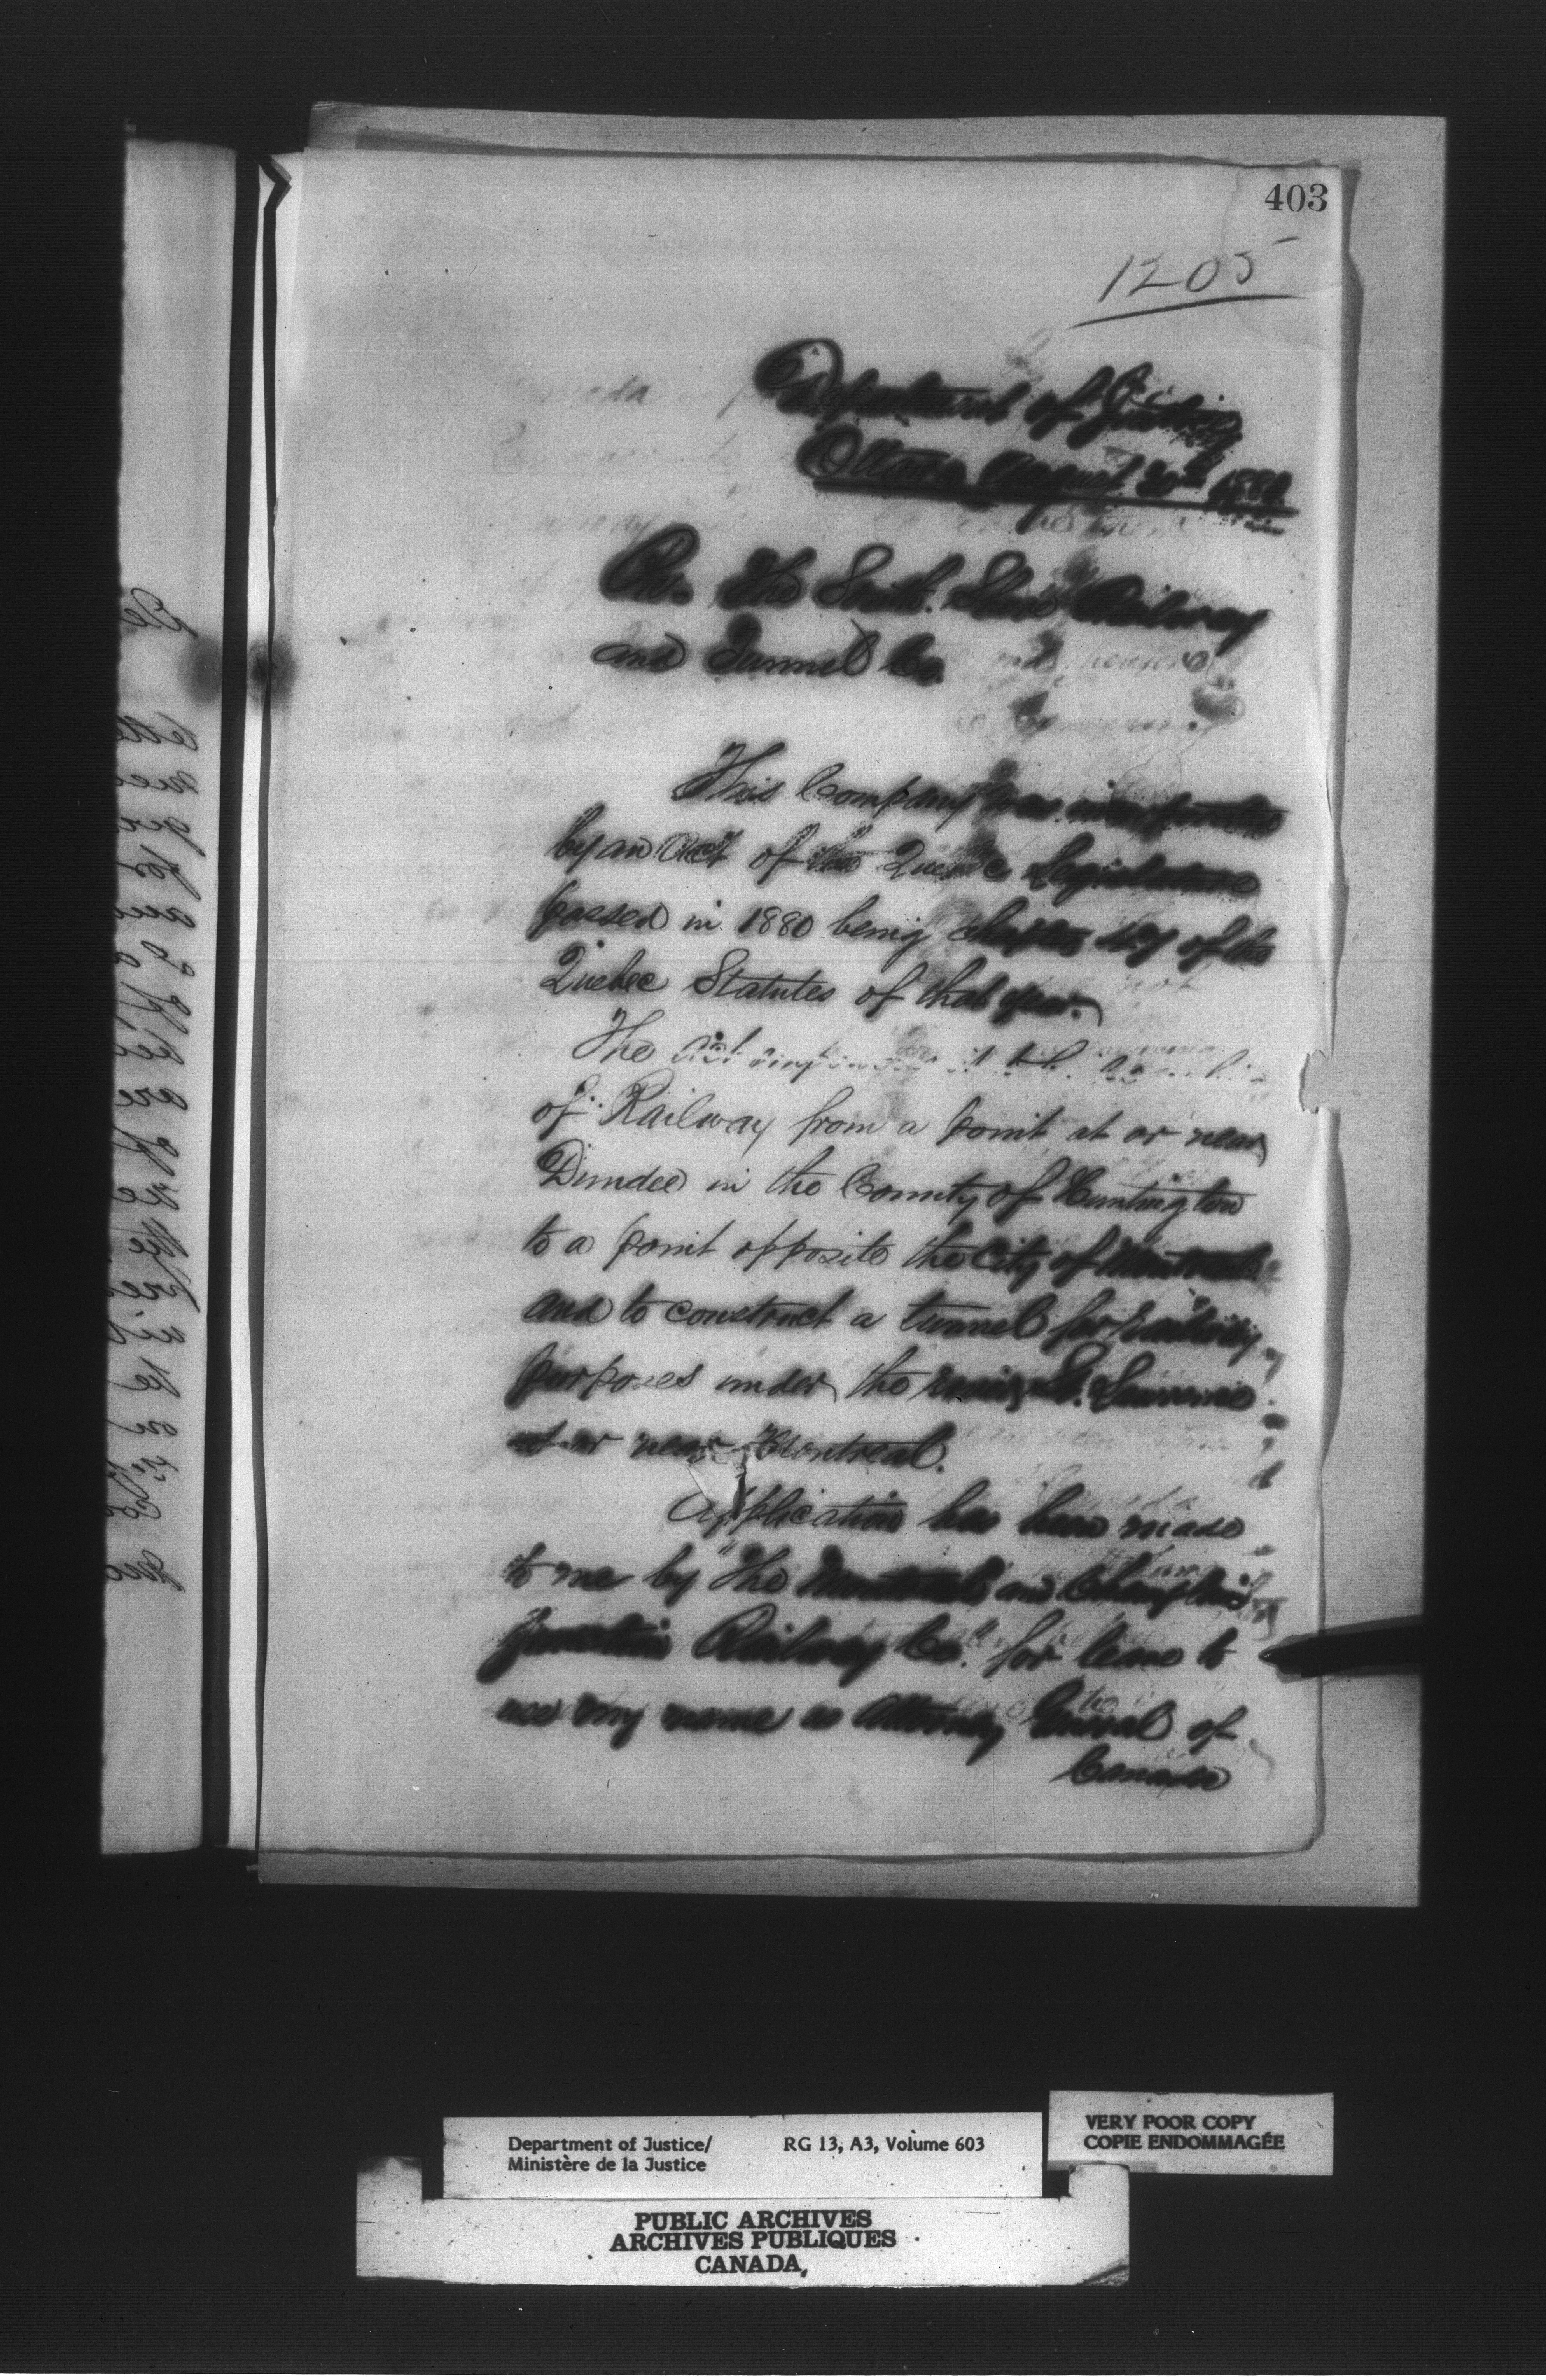 403
1205
Department of Justice
Ottawa August 20th 188
Re. The South Shore Railway
and Tunnel Co.
This Company was incorporated
by an Act of the Quebec Legislature
passed in 1880 being chapter of the
Quebec Statutes of that year.
The Act
of Railway from a point at or near
Dundee in the County of Huntingdon
to a point opposite the City of Montreal
and to construct a tunnel for railway
purposes under the river St. Lawrence
at or near Montreal.
Application has been made
to me by "The Montreal and Champlain
Junction Railway Co." for leave to
use my name as Attorney General of
Canada
Department of Justice/
Ministère de la Justice
RG 13, A3, Volume 603
VERY POOR COPY
COPIE ENDOMMAGÉE
PUBLIC ARCHIVES
ARCHIVES PUBLIQUES
CANADA